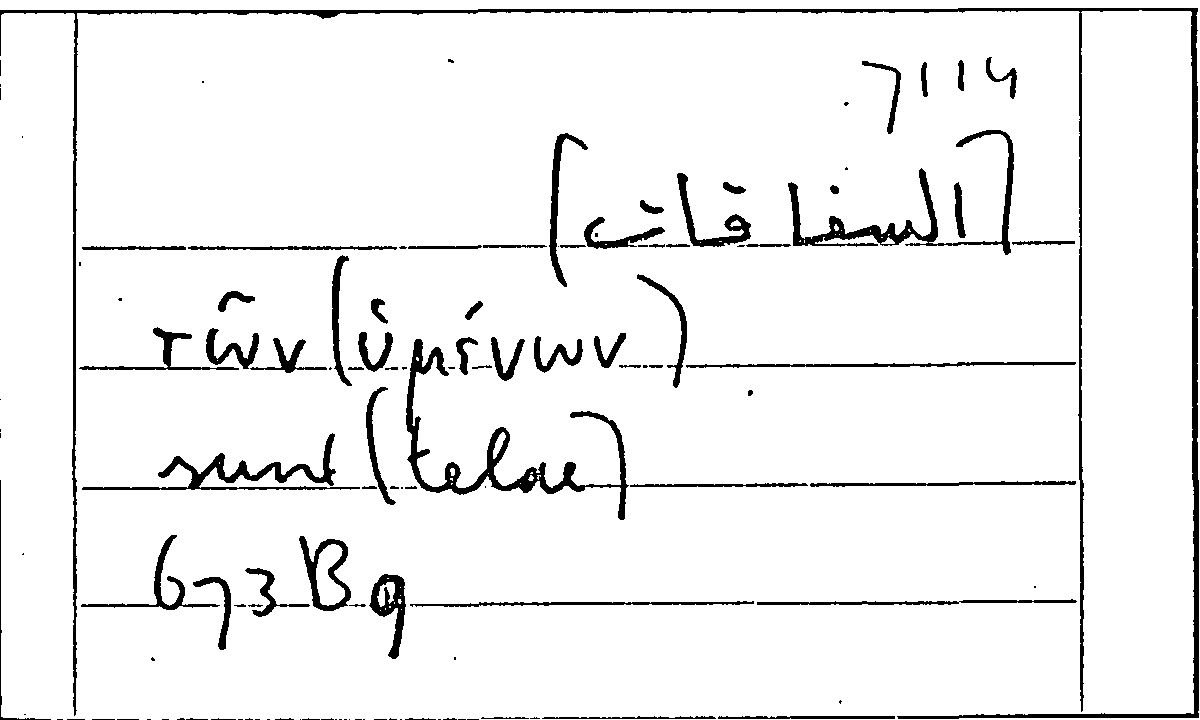 7114
[السفاقات]
τῶν (ὑμένων)
sunt (telae)
673 B 9